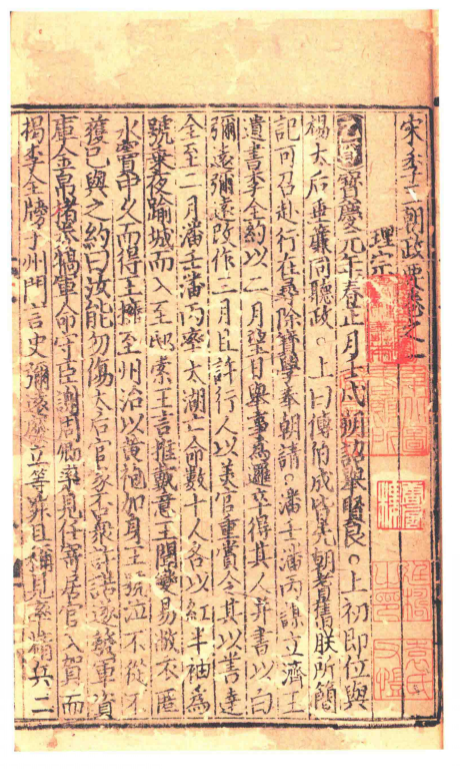 宋季三朝政要卷之一
理宗
乙酉寶慶元年春正月壬戌朔詔舉賢良○上初即位與
楊太后垂簾同聽政○上曰傅伯成皆先朝耆舊朕所簡
記可召赴行在尋除祥學奉朝請○潘壬潘丙謀立濟王
遺書李全約以二月望日舉事爲邏卒得其人并書以白
彌遠彌遠改作三月且許行人以美官重賞令其以書達
全至二月潘壬潘丙率太湖亡命數十人各以紅半袖爲
號乘夜踰城而入至邸索王言推戴意王聞變易敝衣匿
水竇中久而得王擁至州治以黃袍加身王號泣不從不
獲已與之約曰汝能勿傷太后官家否衆許諾遂發軍資
庫金帛楮券犒軍命守臣謝周卿率見任寄居官入賀而
揭李全牓于州門言史彌遠廢立等罪且稱見率精兵二